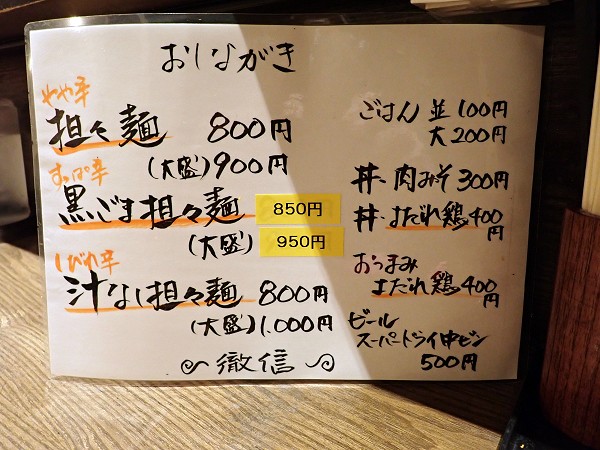 おしながき
やや辛
担々麺 800円
(大盛)900円
すっぱ辛
黒ごま担々麺 850円
(大盛) 950円
しびれ辛
汁なし担々麺 800円
(大盛)1,000円
徹信
ごはん 並100円
大200円
丼・肉みそ300円
丼・よだれ鶏400円
おつまみ
よだれ鶏400円
ビール
スーパードライ中ビン
500円